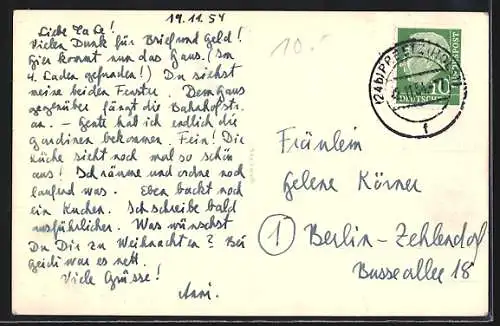 19.11.54
Liebe La Le!
Vielen Dank für Brief und Geld!
Hier kommt nun das Haus. (Im
4. Laden gefunden!) Du siehst
meine beiden Fenster. Dem Haus
gegenüber fängt die Bahnhofstr.
an. – Heute hab ich endlich die
Gardinen bekommen. Fein! Die
Küche sieht noch mal so schön
aus! Ich räume und ordne noch
laufend was. Eben backt noch
ein Kuchen. Ich schreibe bald
ausführlicher. Was wünschst
Du Dir zu Weihnachten? Bei
Heidi war es nett.
Viele Grüsse!
Anni.
10.-
(24b) PREETZ (HOLST)
.11.54
f
DEUTSCHE POST
10
Fräulein
Helene Körner
1 Berlin-Zehlendorf
Busseallee 18